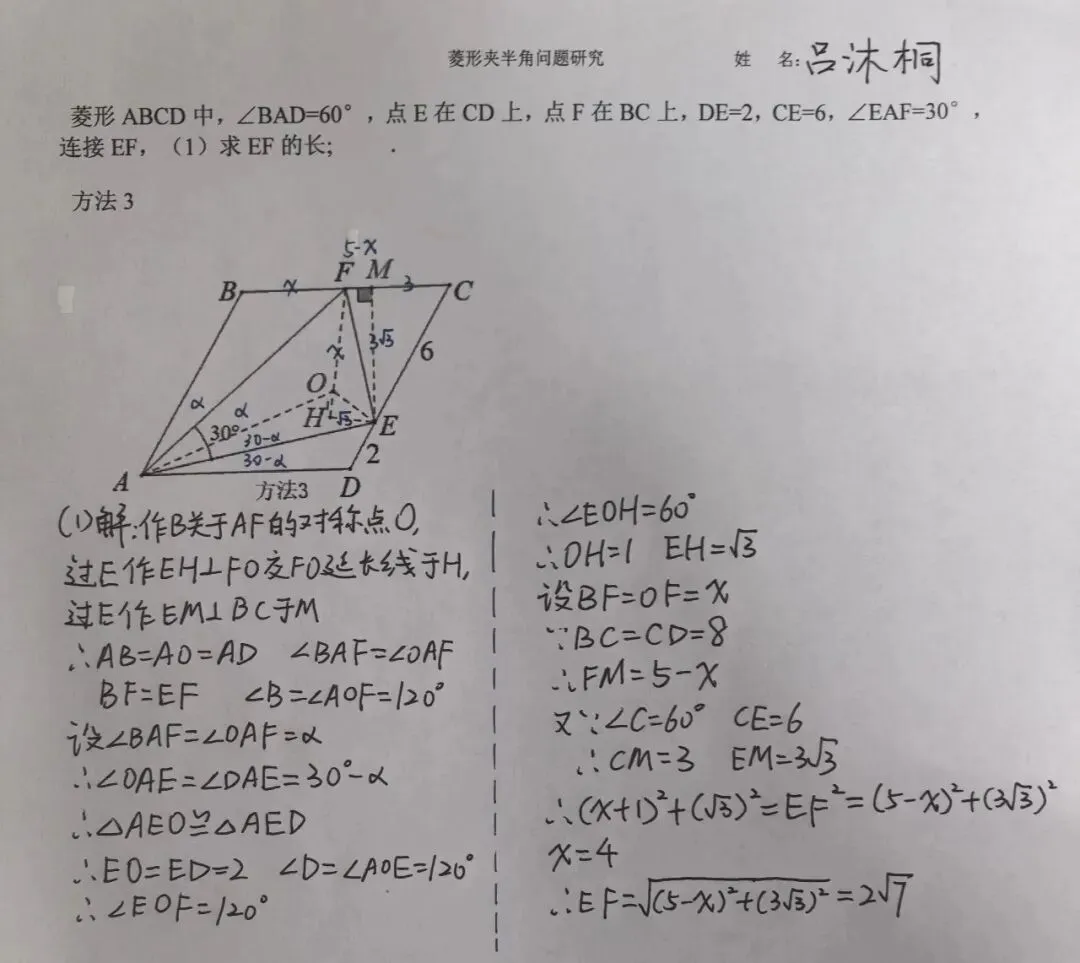 菱形夹半角问题研究 姓 名:吕沐桐
菱形 ABCD 中，∠BAD=60°，点 E 在 CD 上，点 F 在 BC 上，DE=2，CE=6，∠EAF=30°，
连接 EF，（1）求 EF 的长;
方法 3
5-x
B x F M 3 C
α α 30° 30-α 30-α
x 3√3 6
O H 1 √3 E 2
A 方法3 D
(1)解:作B关于AF的对称点O,
过E作EH⊥FO交FO延长线于H,
过E作EM⊥BC于M
∴AB=AO=AD ∠BAF=∠OAF
BF=EF ∠B=∠AOF=120°
设∠BAF=∠OAF=α
∴∠OAE=∠DAE=30°-α
∴△AEO≌△AED
∴EO=ED=2 ∠D=∠AOE=120°
∴∠EOF=120°
∴∠EOH=60°
∴OH=1 EH=√3
设BF=OF=x
∵BC=CD=8
∴FM=5-x
又∵∠C=60° CE=6
∴CM=3 EM=3√3
∴(x+1)²+(√3)²=EF²=(5-x)²+(3√3)²
x=4
∴EF=√((5-x)²+(3√3)²)=2√7